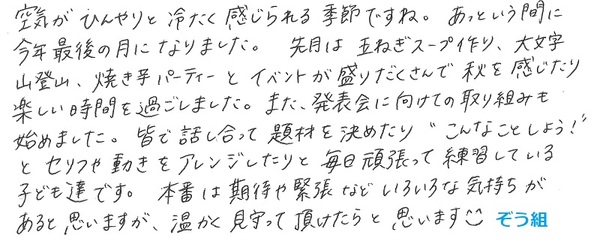 空気がひんやりと冷たく感じられる季節ですね。あっという間に
今年最後の月になりました。先月は玉ねぎスープ作り、大文字
山登山、焼き芋パーティーとイベントが盛りだくさんで秋を感じたり
楽しい時間を過ごしました。また、発表会に向けての取り組みも
始めました。皆で話し合って題材を決めたり"こんなことしよう！"
とセリフや動きをアレンジしたりと毎日頑張って練習している
子ども達です。本番は期待や緊張などいろいろな気持ちが
あると思いますが、温かく見守って頂けたらと思います☺ ぞう組